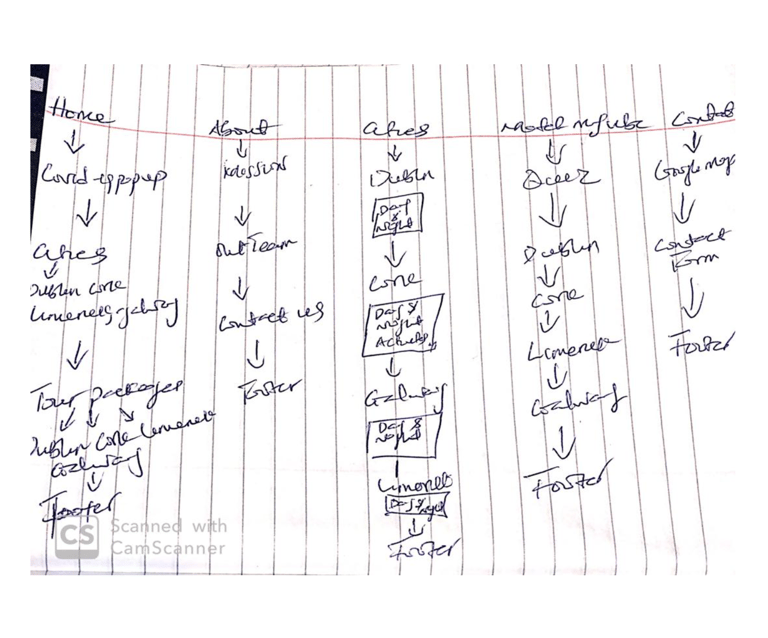 Home
Covid-19 popup
Cities
Dublin Cork
Limerick, galway
Tour packages
Dublin Cork Limerick
Galway
Footer
About
our Team
Contact us
Footer
Cities
Dublin
Day
&
Night
Cork
Day &
Night
Galway
Day &
Night
Limerick
Day & Night
Footer
Dublin
Cork
Limerick
Galway
Footer
Contact
Google Map
Contact
Form
Footer
CS
Scanned with
CamScanner